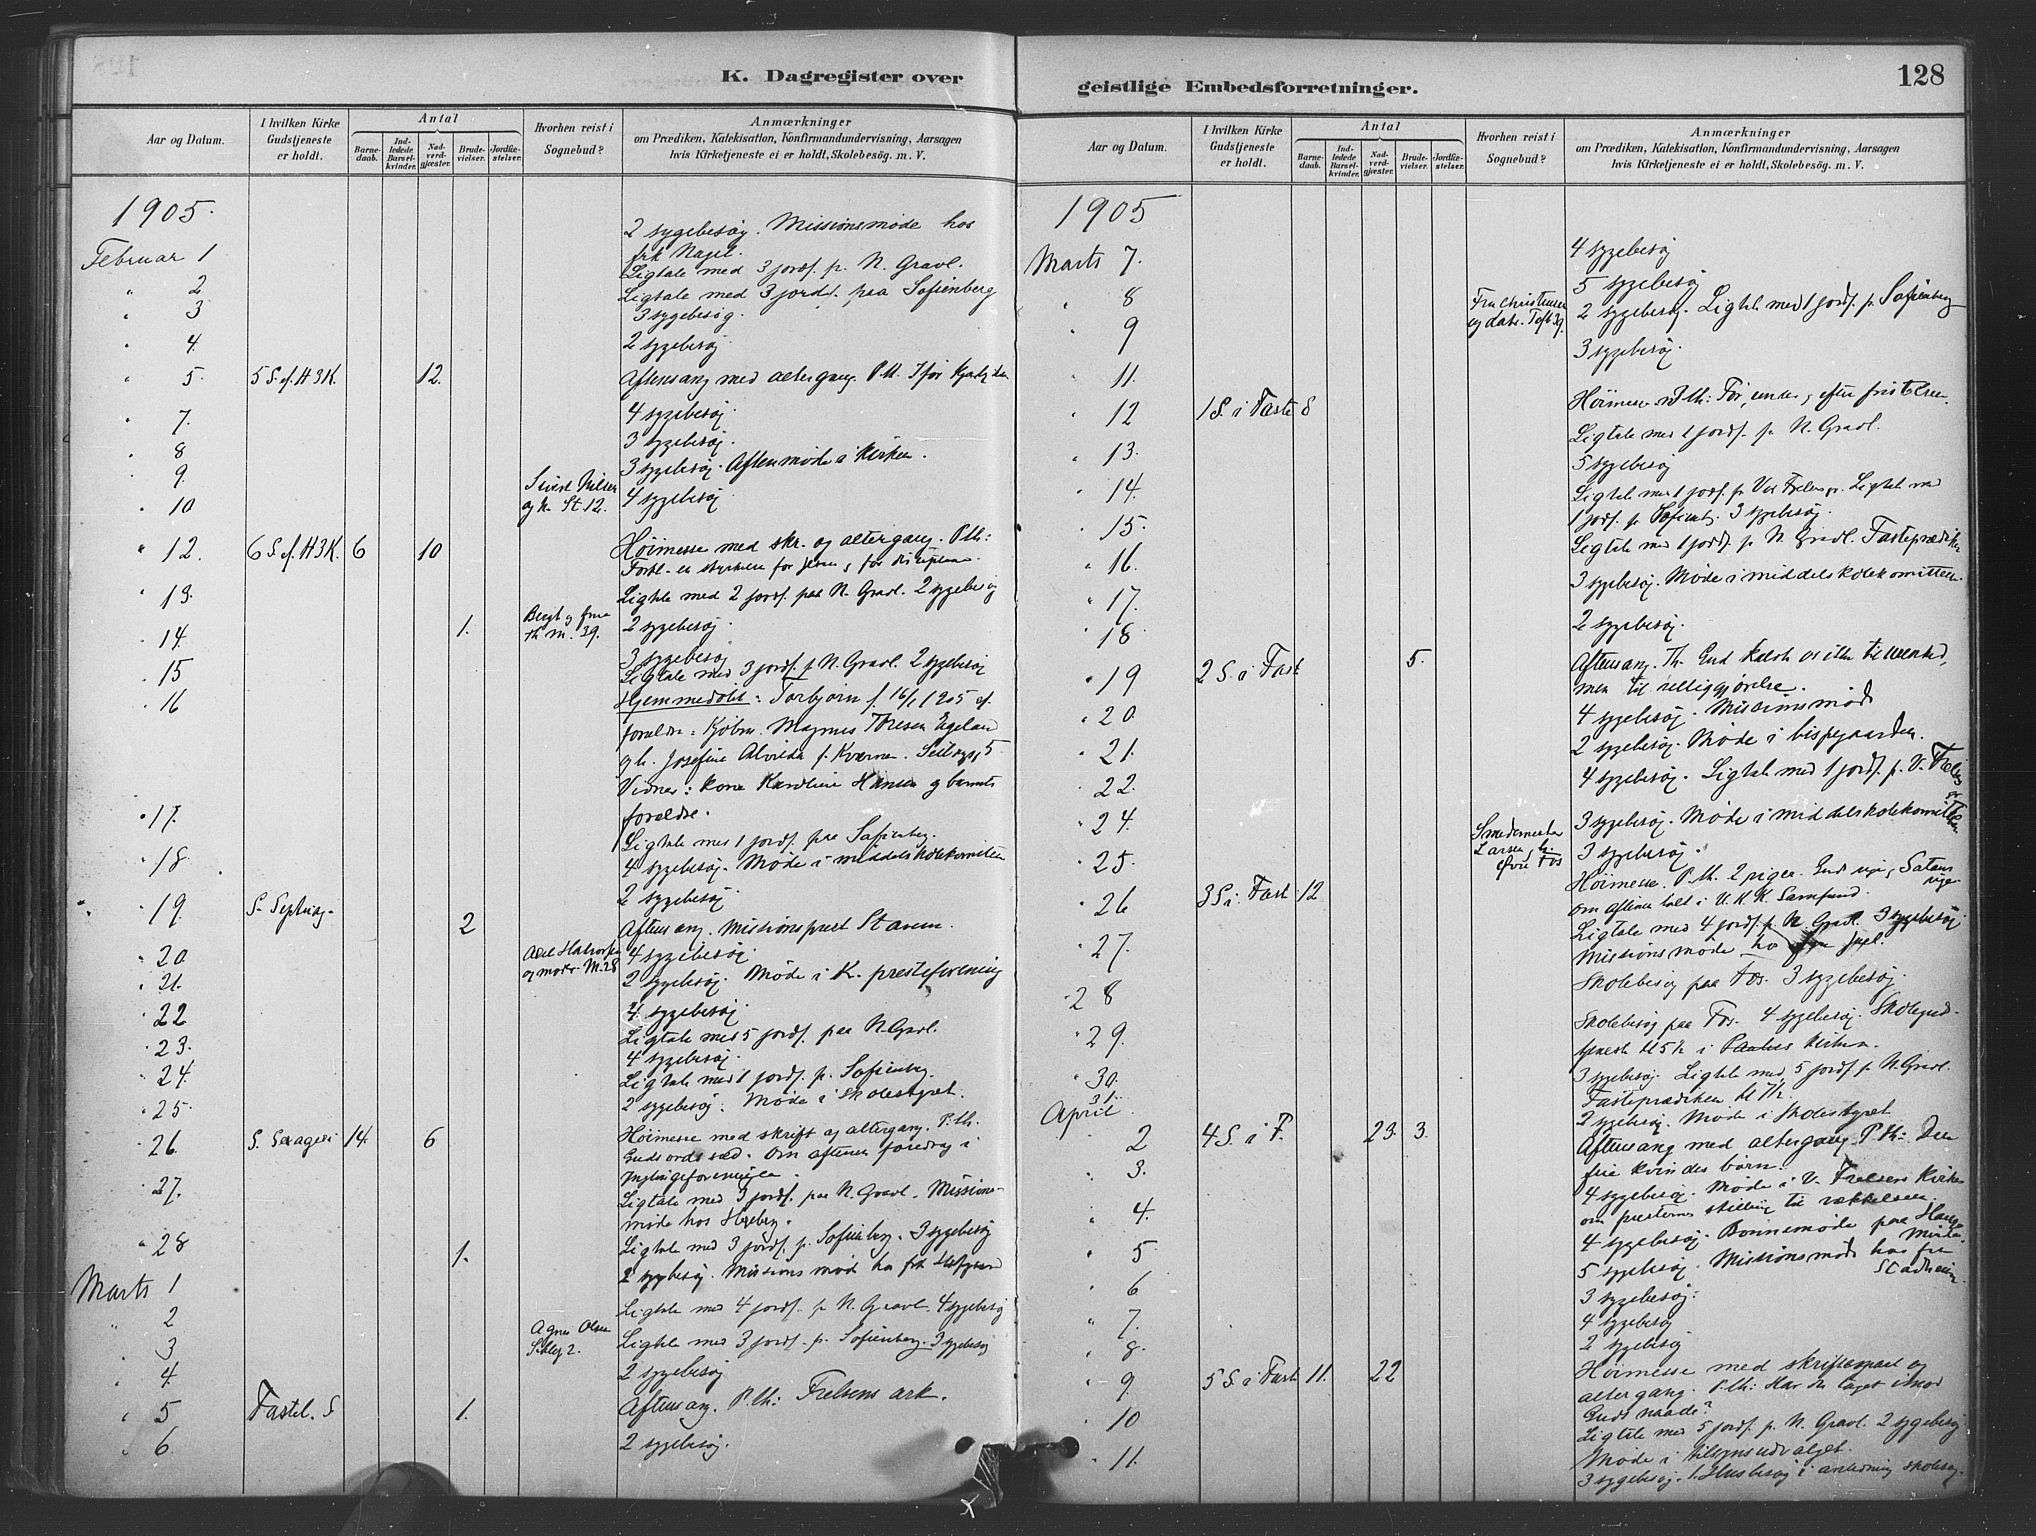 K. Dagregister over
Aar og Datum.
I hvilken Kirke Gudstjeneste er holdt.
Antal
Barnedaab.
Indledede Barselkvinder.
Nadverdgjæster.
Brudevielser.
Jordfæstelser.
Hvorhen reist i Sognebud?
Anmærkninger
om Prædiken, Katekisation, Konfirmandundervisning, Aarsagen
hvis Kirketjeneste ei er holdt, Skolebesög. m. V.
1905.
2 sygebesøg. Missionsmøde hos
Februar 1 frk Nagel.
Ligtale med 3 jordf. p. N. Gravl.
" 2 Ligtale med 3 jordf. paa Sofienberg
" 3 3 sygebesøg.
" 4. 2 sygebesøg.
" 5. 5 S. ef. H3K. 12. Aftensang med altergang. P. th.
" 7. 4 sygebesøg.
" 8 3 sygebesøg.
" 9. 3 sygebesøg. Aftenmøde i Kirken.
" 10 Nilsen St. 12. 4 sygebesøg
" 12. 6 S. ef. H3K. 6 10 Høimesse med skr. og altergang. P. th:
" 13. Ligtale med 2 jordf. paa N. Gravl. 2 sygebesøg
" 14. 1. 39. 2 sygebesøg.
" 15 3 sygebesøg
" 16 Ligtale med 3 jordf. p. N. Gravl. 2 sygebesøg
Hjemmedøbt: Torbjørn f. 16/1 1905 af
foreldre: Kjøbm. Magnus Thesen Egeland
og h. Josefine Alvilda f. Kværner. 5.
Vidner: kone Karoline Hansen og barnets
foreldre.
" 17. Ligtale med 1 jordf. paa Sofienberg.
" 18 4 sygebesøg. Møde i middelskolekomiteen
2 sygebesøg
" 19. S. Septuag. 2 Aftensang. Missionsprest Stavem.
" 20. og moder M. 28 4 sygebesøg
" 21. 2 sygebesøg. Møde i K. presteforening
" 22 4 sygebesøg
" 23. Ligtale med 5 jordf. paa N. Gravl.
4 sygebesøg.
" 24. Ligtale med 1 jordf. p. Sofienberg.
" 25. 2 sygebesøg. Møde i skolestyret.
" 26. S. Sexagesi 14. 6 Høimesse med skrift og altergang. P. th.
Guds ords sæd. Om aftenen foredrag i
Ynglingeforeningen.
" 27. Ligtale med 3 jordf. paa N. Gravl. Missions-
møde hos
" 28 1. Ligtale med 3 jordf. p. Sofienberg. 3 sygebesøg
Marts 1 2 sygebesøg. Missionsmøde hos frk
" 2 Ligtale med 4 jordf. p. N. Gravl. 4 sygebesøg
" 3 Agnes Olsen 2. Ligtale med 3 jordf. p. Sofienberg. 3 sygebesøg
" 4. 2 sygebesøg
" 5 Fastel. S 1. Aftensang. P. th: Frelsens ark.
" 6. 2 sygebesøg.
geistlige Embedsforretninger.
128
Aar og Datum.
I hvilken Kirke Gudstjeneste er holdt.
Antal
Barnedaab.
Indledede Barselkvinder.
Nadverdgjæster.
Brudevielser.
Jordfæstelser.
Hvorhen reist i Sognebud?
Anmærkninger
om Prædiken, Katekisation, Konfirmandundervisning, Aarsagen
hvis Kirketjeneste ei er holdt, Skolebesög. m. V.
1905
Marts 7. 4 sygebesøg
" 8 5 sygebesøg
" 9 Fru Christensen 2 sygebesøg. Ligtale med 1 jordf. p. Sofienberg
" 11. 3 sygebesøg.
" 12 1 S. i Faste 8 Høimesse P. th: Før, under og efter fristelsen.
" 13. Ligtale med 1 jordf. p. N. Gravl.
" 14. 5 sygebesøg
" 15. Ligtale med 1 jordf. p. Vor Frelsers. Ligtale med
1 jordf. p. Sofienb. 3 sygebesøg.
" 16. Ligtale med 1 jordf. p. N. Gravl. Fasteprædiken
" 17. 3 sygebesøg. Møde i middelskolekomitteen.
" 18 2 sygebesøg.
" 19 2 S. i Fast 5. Aftensang. Th. Gud kaldte os ikke til urenhed,
men til helliggjørelse.
" 20. 4 sygebesøg. Missionsmøde
" 21. 2 sygebesøg. Møde i bispegaarden.
" 22. 4 sygebesøg. Ligtale med 1 jordf. p. V. Frelsers
" 24. 3 sygebesøg. Møde i middelskolekomitteen
" 25. Smedemester Larsen, Øvre Fos 3 sygebesøg.
" 26 3 S. i Fast 12 Høimesse. P. th. 2 riger. Guds rige, Satans rige
om aftenen talt i U. K. K. Samfund.
" 27. Ligtale med 4 jordf. p. N. Gravl. 3 sygebesøg
Missionsmøde hos Juel.
" 28 Skolebesøg paa Fos. 3 sygebesøg.
" 29. Skolebesøg paa Fos. 4 sygebesøg. Skolegud-
tjeneste kl 5 1/2 i Paulus kirken.
" 30. 3 sygebesøg. Ligtale med 5 jordf. p. N. Gravl.
Fasteprædiken kl 7 1/2.
31. 2 sygebesøg. Møde i Skolestyret
April
" 2 4 S. i F. 23. 3. Aftensang med altergang. P. th: Den
frie kvindes børn.
" 3. 4 sygebesøg. Møde i V. Frelsers Kirke
om presternes stilling til vækkelsen.
" 4. 4 sygebesøg. Bønnemøde paa Hauges Minde.
" 5 5 sygebesøg. Missionsmøde hos fru Stadheim.
" 6 3 sygebesøg.
" 7. 4 sygebesøg
" 8. 2 sygebesøg
" 9. 5 S. i Fast 11. 22 Høimesse med skriftemaal og
altergang. P. th: Har du taget imod
Guds naade?
" 10 Ligtale med 5 jordf. p. N. Gravl. 2 sygebesøg
Møde i tilsynsudvalget.
" 11. 3 sygebesøg. 1 Husbesøg i anledning skolesag.